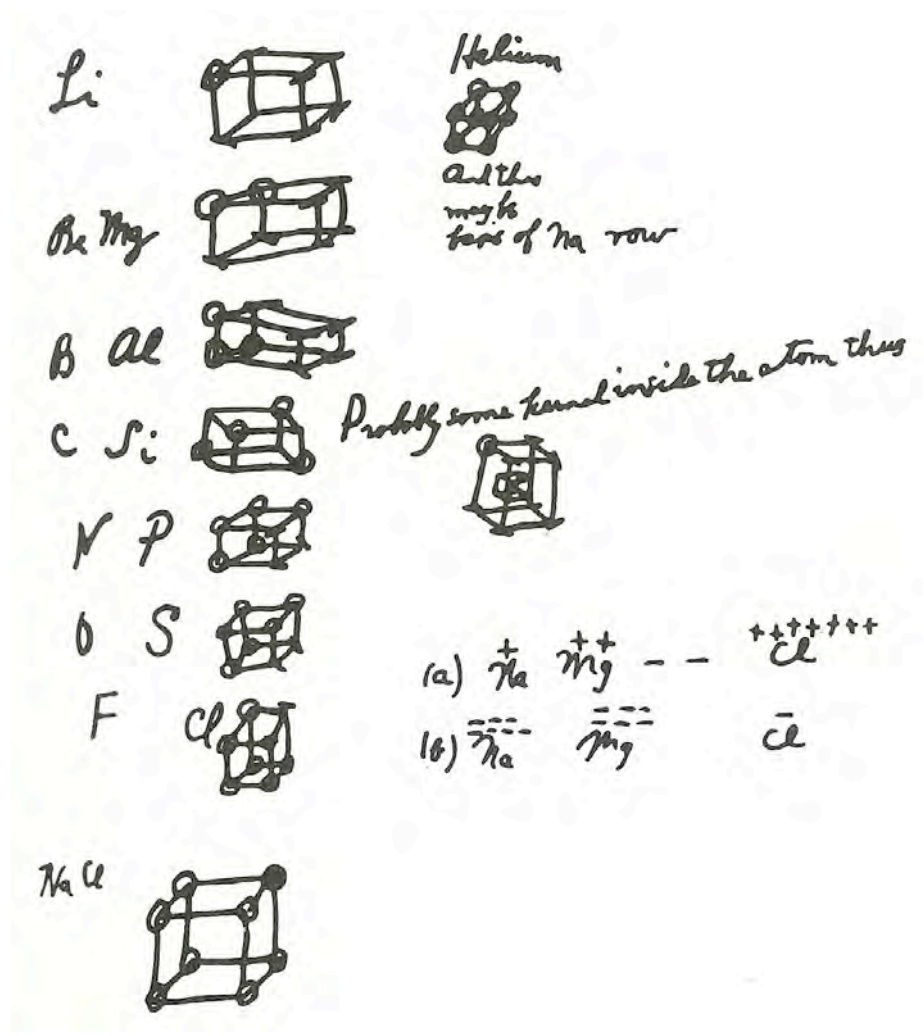 Li
Helium
And this
may be
basis of Na row
Be Mg
B Al
Probably some kernel inside the atom thus
C Si
N P
O S
F Cl
(a) + Na ++ Mg - - +++++++ Cl
(b) ------ Na ------ Mg - Cl
Na Cl